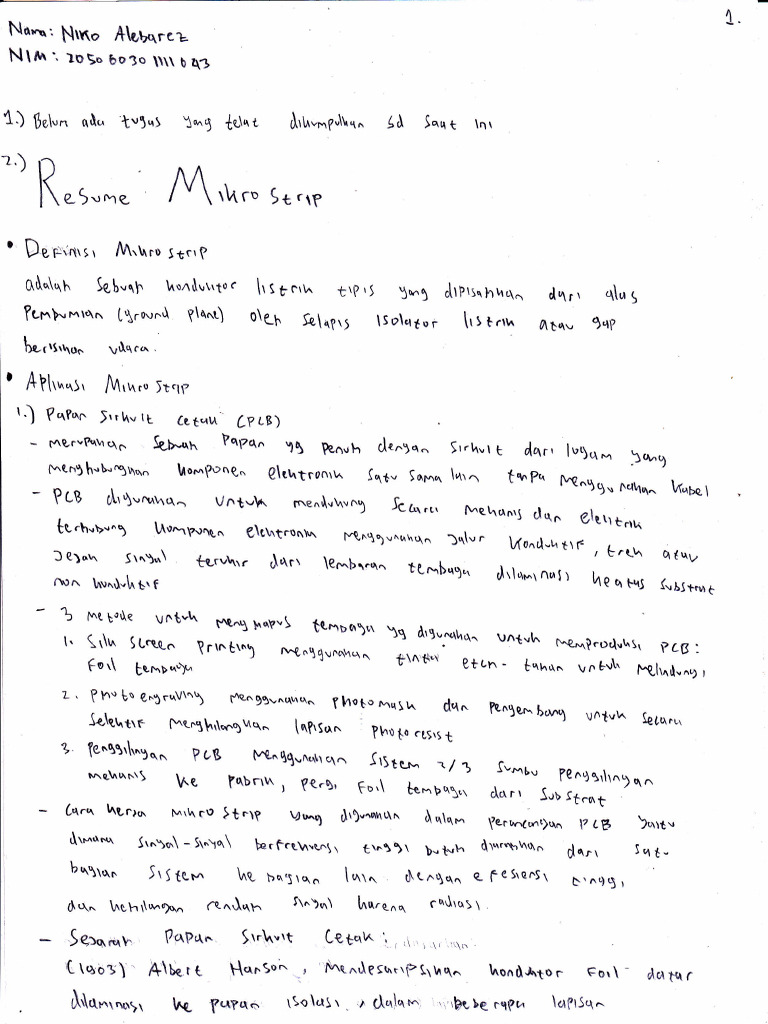 1.
Nama: Niko Alebarez
NIM: 205060301111043
1.) Belum ada tugas yang telat dikumpulkan sd saat ini
2.) Resume Mikro Strip
• Definisi Mikro strip
adalah sebuah konduktor listrik tipis yang dipisahkan dari alas
Pembumian (ground plane) oleh selapis isolator listrik atau gap
berisikan udara.
• Aplikasi Mikro Strip
1.) Papan Sirkuit Cetak (PCB)
- merupakan sebuah papan yg penuh dengan sirkuit dari logam yang
menghubungkan komponen elektronik satu sama lain tanpa menggunakan kabel
- PCB digunakan untuk mendukung secara mekanis dan elektrik
terhubung komponen elektronik menggunakan jalur konduktif, trek atau
jejak sinyal terukir dari lembaran tembaga dilaminasi keatas substrat
non konduktif
- 3 metode untuk menghapus tembaga yg digunakan untuk memproduksi PCB:
1. Silk Screen Printing menggunakan tinta etch-tahan untuk melindungi
foil tembaga
2. Photoengraving menggunakan photomask dan pengembang untuk secara
selektif menghilangkan lapisan photoresist
3. Penggilingan PCB menggunakan sistem 2/3 sumbu penggilingan
mekanis ke pabrik, pergi foil tembaga dari substrat
- Cara kerja mikro strip yang digunakan dalam perancangan PCB yaitu
dimana sinyal-sinyal berfrekuensi tinggi butuh diarahkan dari satu
bagian sistem ke bagian lain dengan efesiensi tinggi
dan kehilangan rendah sinyal karena radiasi.
- Sejarah Papan Sirkuit Cetak:
(1903) Albert Hanson, Mendeskripsikan konduktor foil datar
dilaminasi ke papan isolasi, dalam beberapa lapisan